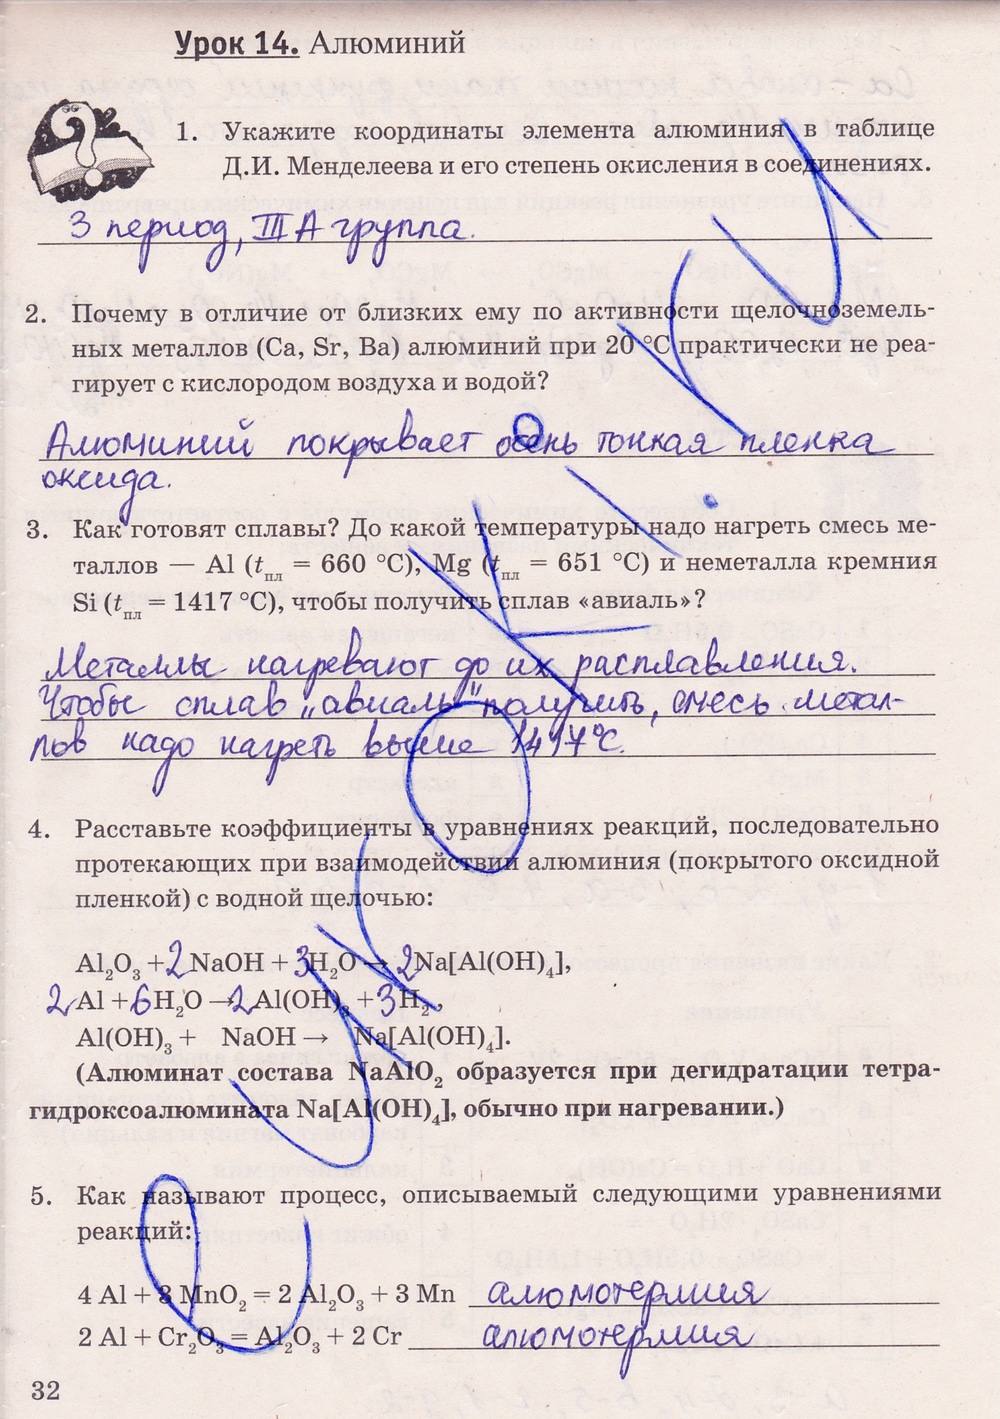 Урок 14. Алюминий
1. Укажите координаты элемента алюминия в таблице
Д.И. Менделеева и его степень окисления в соединениях.
3 период, III А группа.
2. Почему в отличие от близких ему по активности щелочноземель-
ных металлов (Ca, Sr, Ba) алюминий при 20 °C практически не реа-
гирует с кислородом воздуха и водой?
Алюминий покрывает очень тонкая пленка
оксида.
3. Как готовят сплавы? До какой температуры надо нагреть смесь ме-
таллов — Al (tпл = 660 °C), Mg (tпл = 651 °C) и неметалла кремния
Si (tпл = 1417 °C), чтобы получить сплав «авиаль»?
Металлы нагревают до их расплавления.
Чтобы сплав „авиаль" получить, смесь метал-
лов надо нагреть выше 1417°C.
4. Расставьте коэффициенты в уравнениях реакций, последовательно
протекающих при взаимодействии алюминия (покрытого оксидной
пленкой) с водной щелочью:
Al₂O₃ + 2 NaOH + 3 H₂O → 2 Na[Al(OH)₄],
2 Al + 6 H₂O → 2 Al(OH)₃ + 3 H₂,
Al(OH)₃ + NaOH → Na[Al(OH)₄].
(Алюминат состава NaAlO₂ образуется при дегидратации тетра-
гидроксоалюмината Na[Al(OH)₄], обычно при нагревании.)
5. Как называют процесс, описываемый следующими уравнениями
реакций:
4 Al + 3 MnO₂ = 2 Al₂O₃ + 3 Mn алюмотермия
2 Al + Cr₂O₃ = Al₂O₃ + 2 Cr алюмотермия
32